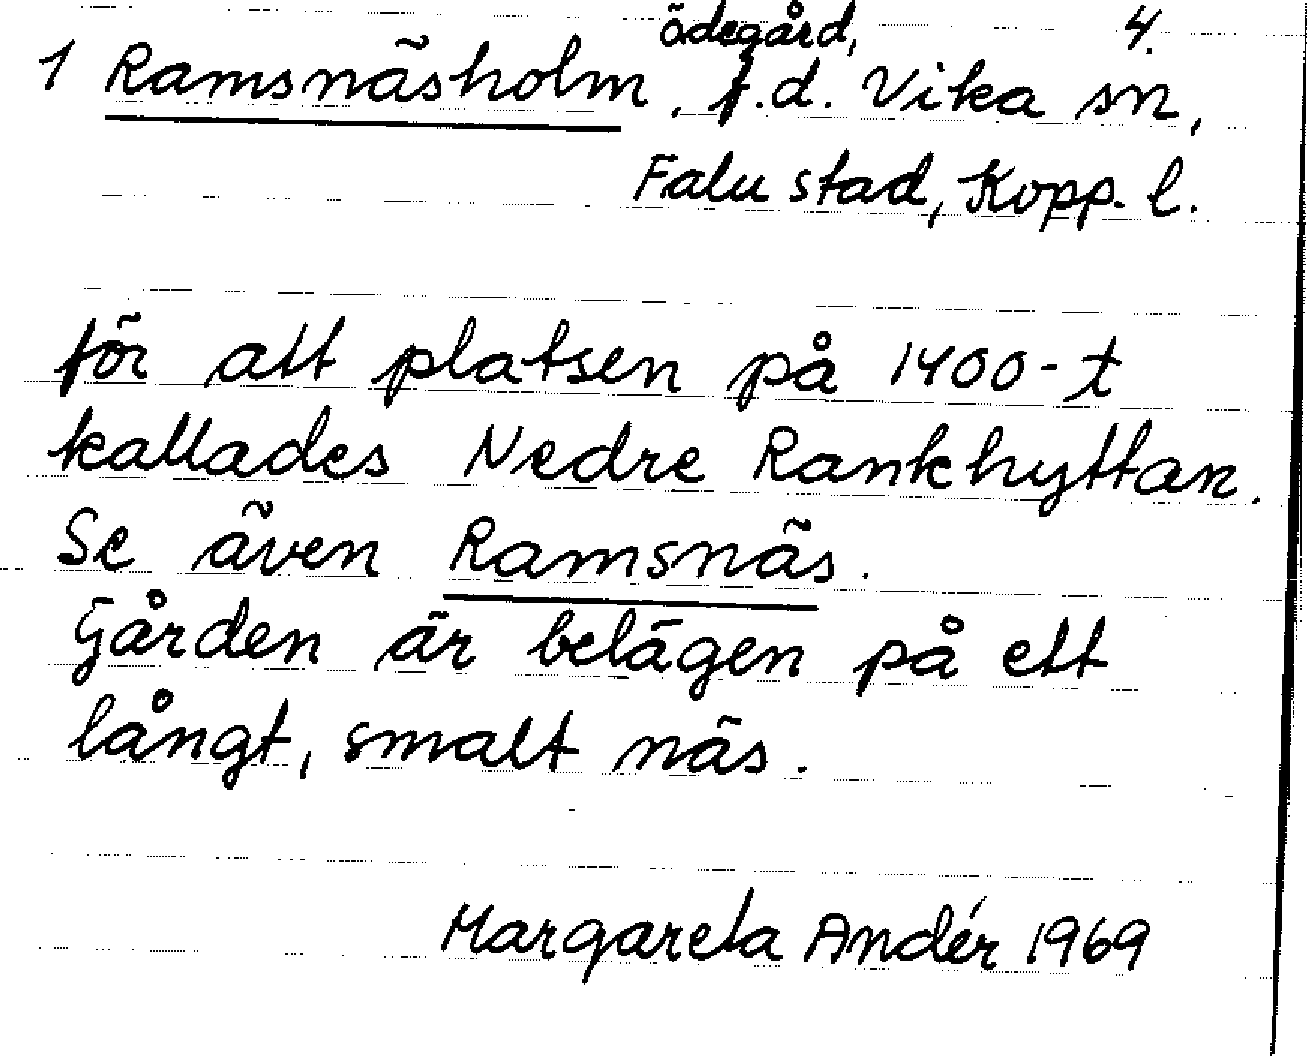 ödegård, 4.
1 Ramsnäsholm, f.d. Vika sn,
Falu stad, Kopp. l.
för att platsen på 1400-t
kallades Nedre Rankhyttan.
Se även Ramsnäs.
Gården är belägen på ett
långt, smalt näs.
Margareta Andér 1969